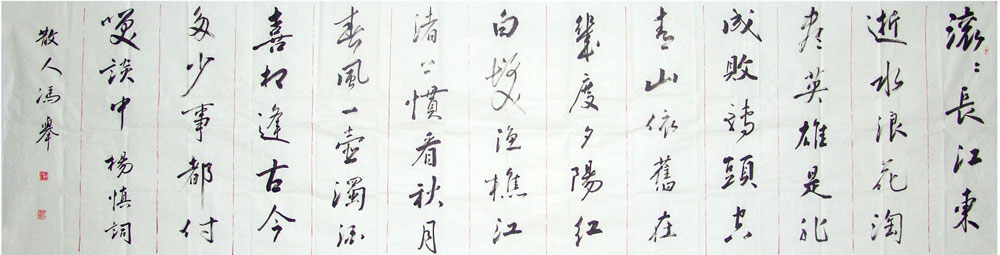 滚〻長江東
逝水浪花淘
盡英雄是非
成敗轉頭空
青山依舊在
幾度夕陽紅
白髮漁樵江
渚上慣看秋月
春風一壺濁酒
喜相逢古今
多少事都付
笑談中 楊慎詞
散人馮舉